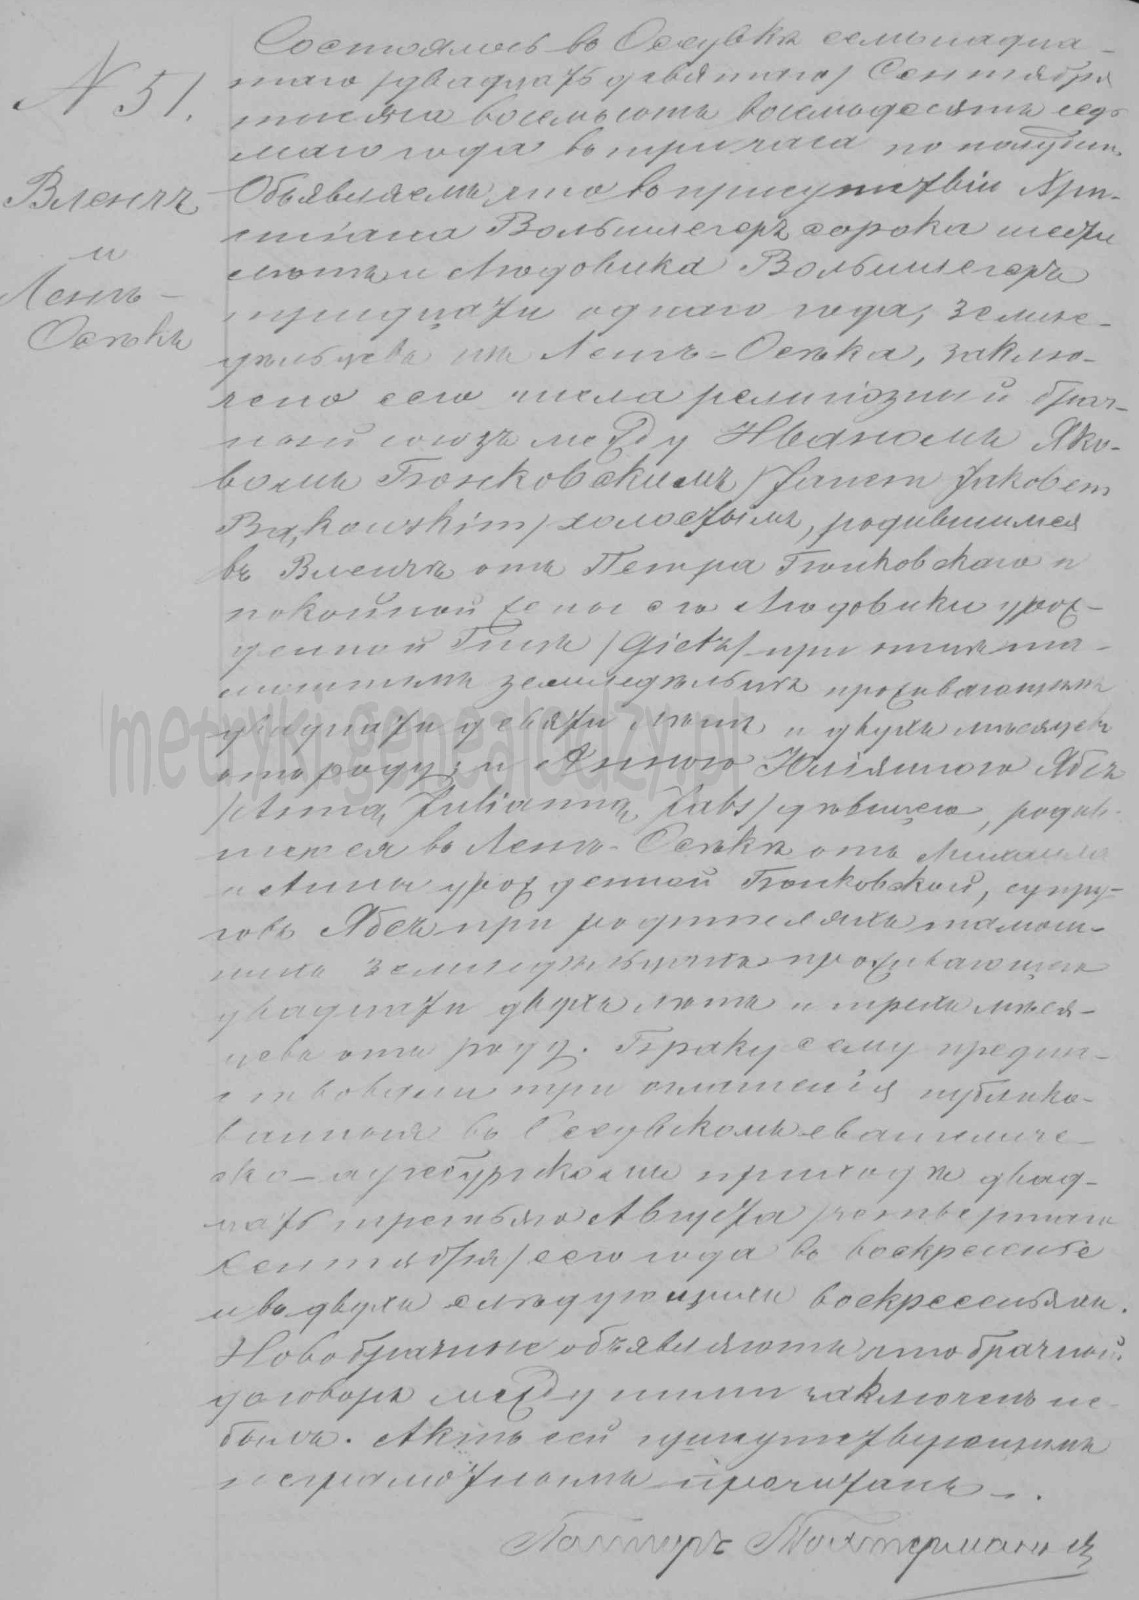 N 51.
Вленчъ
и
Ленъ-
Осѣкъ
Состоялось во Оссувкѣ семьнадца-
таго /двадцать девятаго/ Сентября
тысяча восемьсотъ восемьдесятъ седь-
маго года въ три часа по полудни.
Объявляемъ, что въ присутствіи Хри-
стіана Вольшлегеръ сорока шести
лѣтъ и Людовика Вольшлегеръ
тридцати одного года, земле-
дѣльцевъ изъ Ленъ-Осѣка, заклю-
чено сего числа религіозный брач-
ный союзъ между Иваномъ Яко-
вомъ Бонковскимъ /Janem Jakobem
Bąkowskim/ холостымъ, родившимся
въ Вленчѣ отъ Петра Бонковскаго и
покойной жены его Людовики урож-
денной Гицъ /Gietz/ при отцѣ та-
мошнемъ земледѣльцѣ проживающимъ
двадцати девяти лѣтъ и двухъ мѣсяцевъ
отъ роду; и Анною Юліанною Ябсъ
/Anną Julianną Jabs/ дѣвицею, родив-
шеюся въ Ленъ-Осѣкѣ отъ Михаила
и Анны урожденной Бонковской, супру-
говъ Ябсъ при родителяхъ тамош-
нихъ земледѣльцахъ проживающею
двадцати двухъ лѣтъ и трехъ мѣся-
цевъ отъ роду. Браку сему предше-
ствовали три оглашенія публико-
ванныя въ Оссувскомъ евангеличе-
ско-аугсбургскомъ приходѣ двад-
цать третьяго Августа /четвертаго
Сентября/ сего года въ воскресенье
и въ двухъ слѣдующихъ воскресеньяхъ.
Новобрачные объявляютъ, что брачный
договоръ между ними заключенъ не
былъ. Актъ сей присутствующимъ
неграмотнымъ прочитанъ.
Пасторъ
metryki.genealodzy.pl